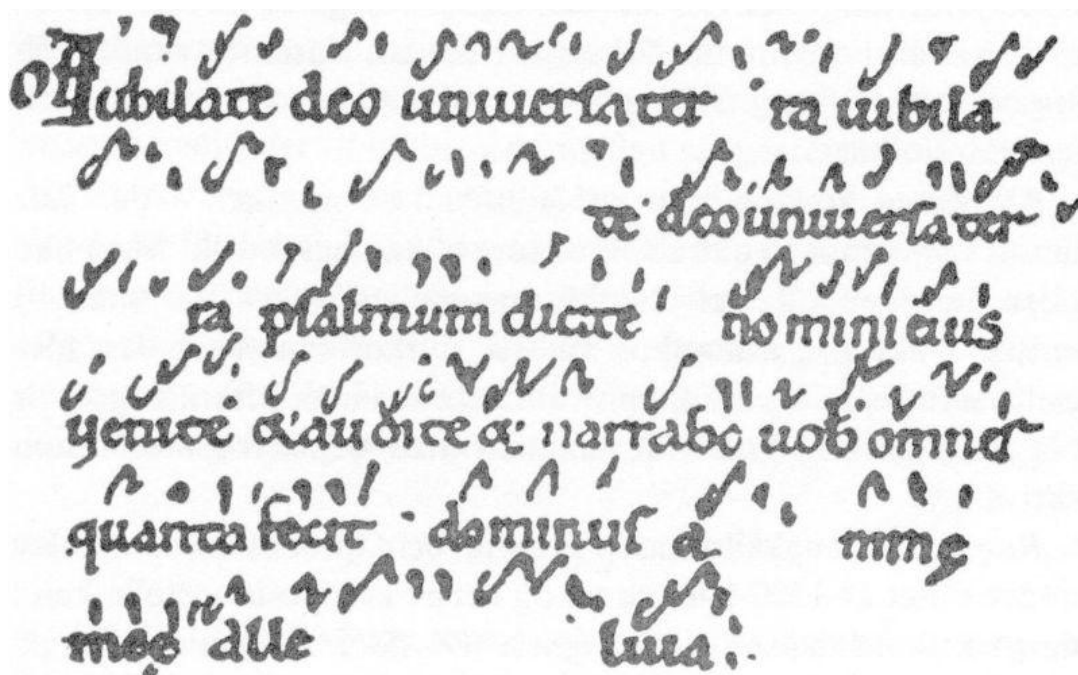 off Iubilate deo uniuersa ter ra iubila
te deo uniuersa ter
ra psalmum dicite nomini eius
uenite & audite & narrabo uob omnes
quanta fecit dominus a nime
mee alle luia.